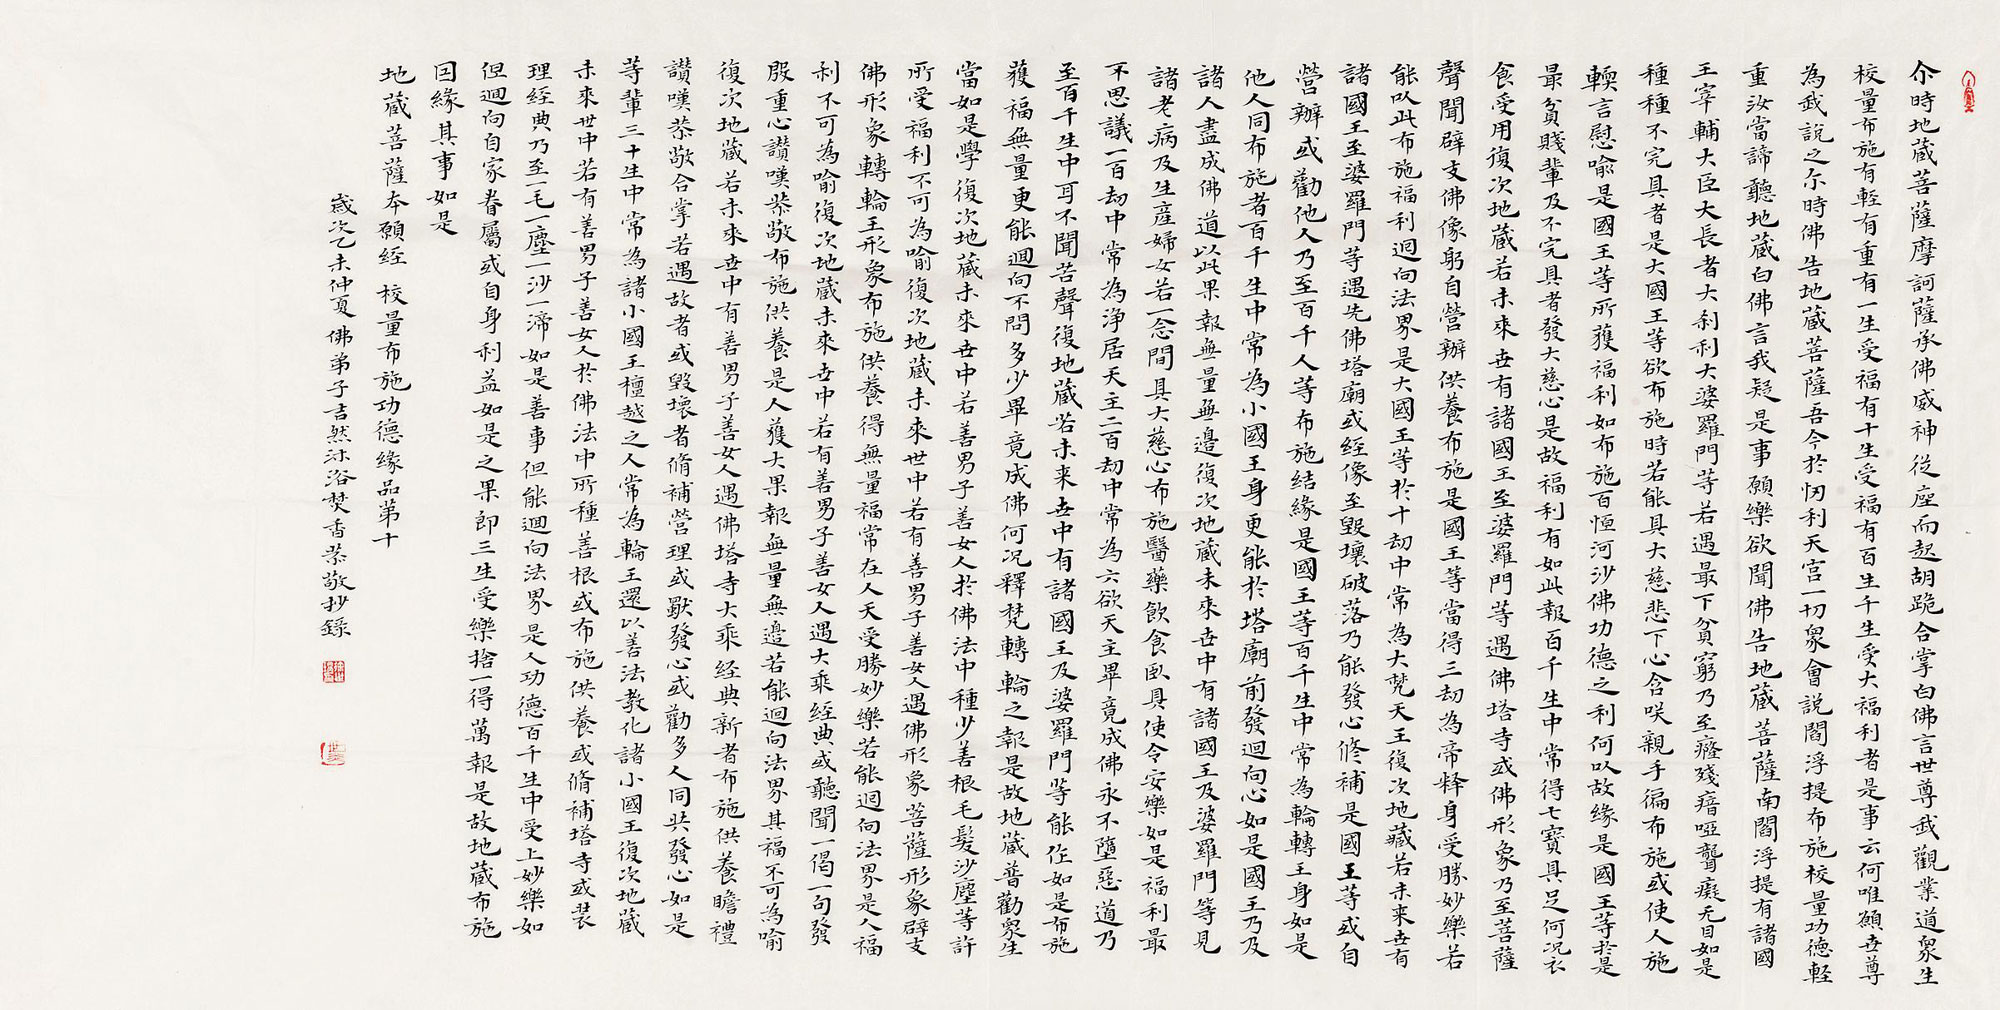 尒時地蔵菩薩摩訶薩承佛威神從座而起胡跪合掌白佛言世尊我觀業道衆生
校量布施有軽有重有一生受福有十生受福有百生千生受大福利者是事云何唯願世尊
為我說之尒時佛告地蔵菩薩吾今於忉利天宮一切衆會說閻浮提布施校量功德軽
重汝當諦聽地蔵白佛言我疑是事願樂欲聞佛告地蔵菩薩南閻浮提有諸國
王宰輔大臣大長者大刹利大婆羅門等若遇最下貧窮乃至癃殘瘖啞聾癡无目如是
種種不完具者是大國王等欲布施時若能具大慈悲下心含咲親手徧布施或使人施
輭言慰喻是國王等所獲福利如布施百恒河沙佛功德之利何以故緣是國王等於是
最貧賤輩及不完具者發大慈心是故福利有如此報百千生中常得七寶具足何況衣
食受用復次地蔵若未來世有諸國王至婆羅門等遇佛塔寺或佛形象乃至菩薩
聲聞辟支佛像躬自營辦供養布施是國王等當得三劫為帝釋身受勝妙樂若
能以此布施福利迴向法界是大國王等於十劫中常為大梵天王復次地藏若未來世有
諸國王至婆羅門等遇先佛塔廟或經像至毀壞破落乃能發心修補是國王等或自
營辦或勸他人乃至百千人等布施結緣是國王等百千生中常為輪轉王身如是
他人同布施者百千生中常為小國王身更能於塔廟前發迴向心如是國王乃及
諸人盡成佛道以此果報無量無邊復次地蔵未來世中有諸國王及婆羅門等見
諸老病及生產婦女若一念間具大慈心布施醫藥飲食臥具使令安樂如是福利最
不思議一百劫中常為淨居天主二百劫中常為六欲天主畢竟成佛永不墮惡道乃
至百千生中耳不聞苦聲復地蔵若未来世中有諸國王及婆羅門等能作如是布施
獲福無量更能迴向不問多少畢竟成佛何况釋梵轉輪之報是故地蔵普勸衆生
當如是學復次地蔵未來世中若善男子善女人於佛法中種少善根毛髮沙塵等許
所受福利不可為喻復次地蔵未來世中若有善男子善女人遇佛形象菩薩形象辟支
佛形象轉輪王形象布施供養得無量福常在人天受勝妙樂若能迴向法界是人福
利不可為喻復次地蔵未來世中若有善男子善女人遇大乘經典或聽聞一偈一句發
殷重心讃嘆恭敬布施供養是人獲大果報無量無邊若能迴向法界其福不可為喻
復次地蔵若未來世中有善男子善女人遇佛塔寺大乘経典新者布施供養瞻禮
讃嘆恭敬合掌若遇故者或毀壞者脩補營理或獸發心或勸多人同共發心如是
等輩三十生中常為諸小國王檀越之人常為輪王還以善法教化諸小國王復次地蔵
未來世中若有善男子善女人於佛法中所種善根或布施供養或脩補塔寺或裝
理經典乃至一毛一塵一沙一渧如是善事但能迴向法界是人功德百千生中受上妙樂如
但迴向自家眷屬或自身利益如是之果即三生受樂捨一得萬報是故地蔵布施
因緣其事如是
地蔵菩薩本願經 校量布施功德緣品第十
歲次乙未仲夏佛弟子吉然沐浴焚香恭敬抄錄